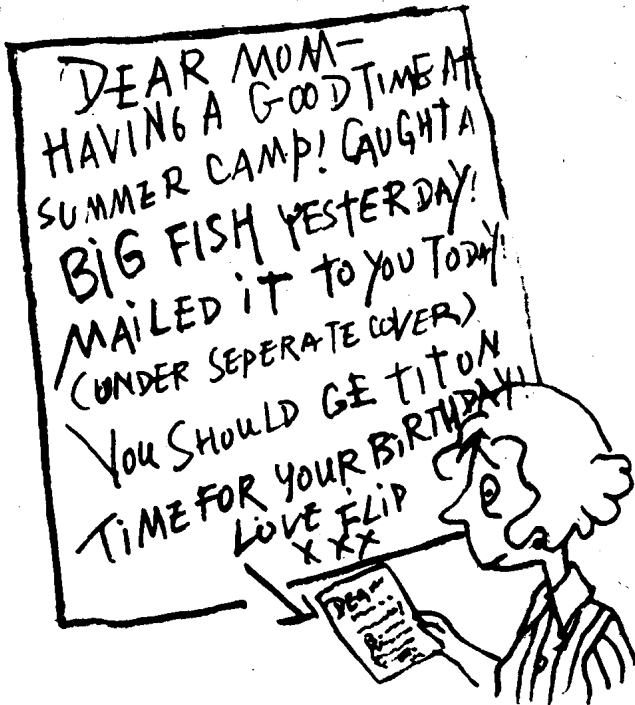 DEAR MOM—
HAVING A GOOD TIME AT
SUMMER CAMP! CAUGHT A
BiG FISH YESTERDAY!
MAiLED iT TO YOU TODAY!
(UNDER SEPERATE COVER)
YOU SHOULD GET IT ON
TiME FOR YOUR BiRTHDAY!
LOVE FLIP
XXX
DEAR